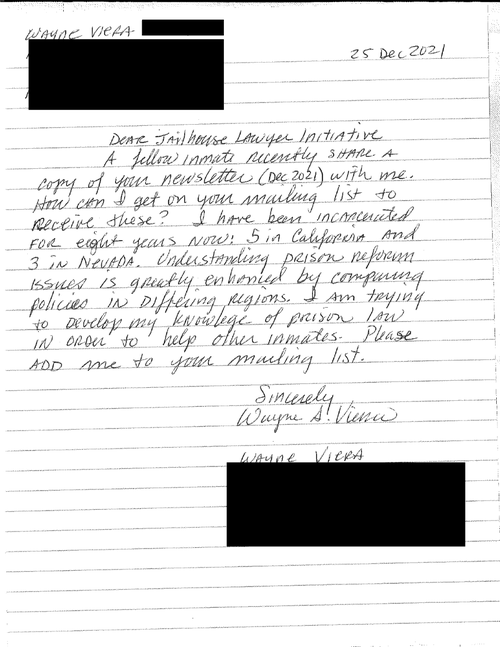 WAYNE VIERA
25 Dec 2021
DEAR Jailhouse Lawyer Initiative
A fellow inmate recently SHARE A
copy of your newsletter (Dec 2021) with me.
How can I get on your mailing list to
RECEIVE these? I have been incarcerated
FOR eight years now: 5 in California and
3 in NEVADA. Understanding prison reform
ISSUES is greatly enhanced by comparing
policies in Differing Regions. I Am trying
to Develop my knowlege of prison law
IN ORDER to help other inmates. Please
ADD me to your mailing list.
Sincerely,
Wayne A. Viera
WAYNE VIERA